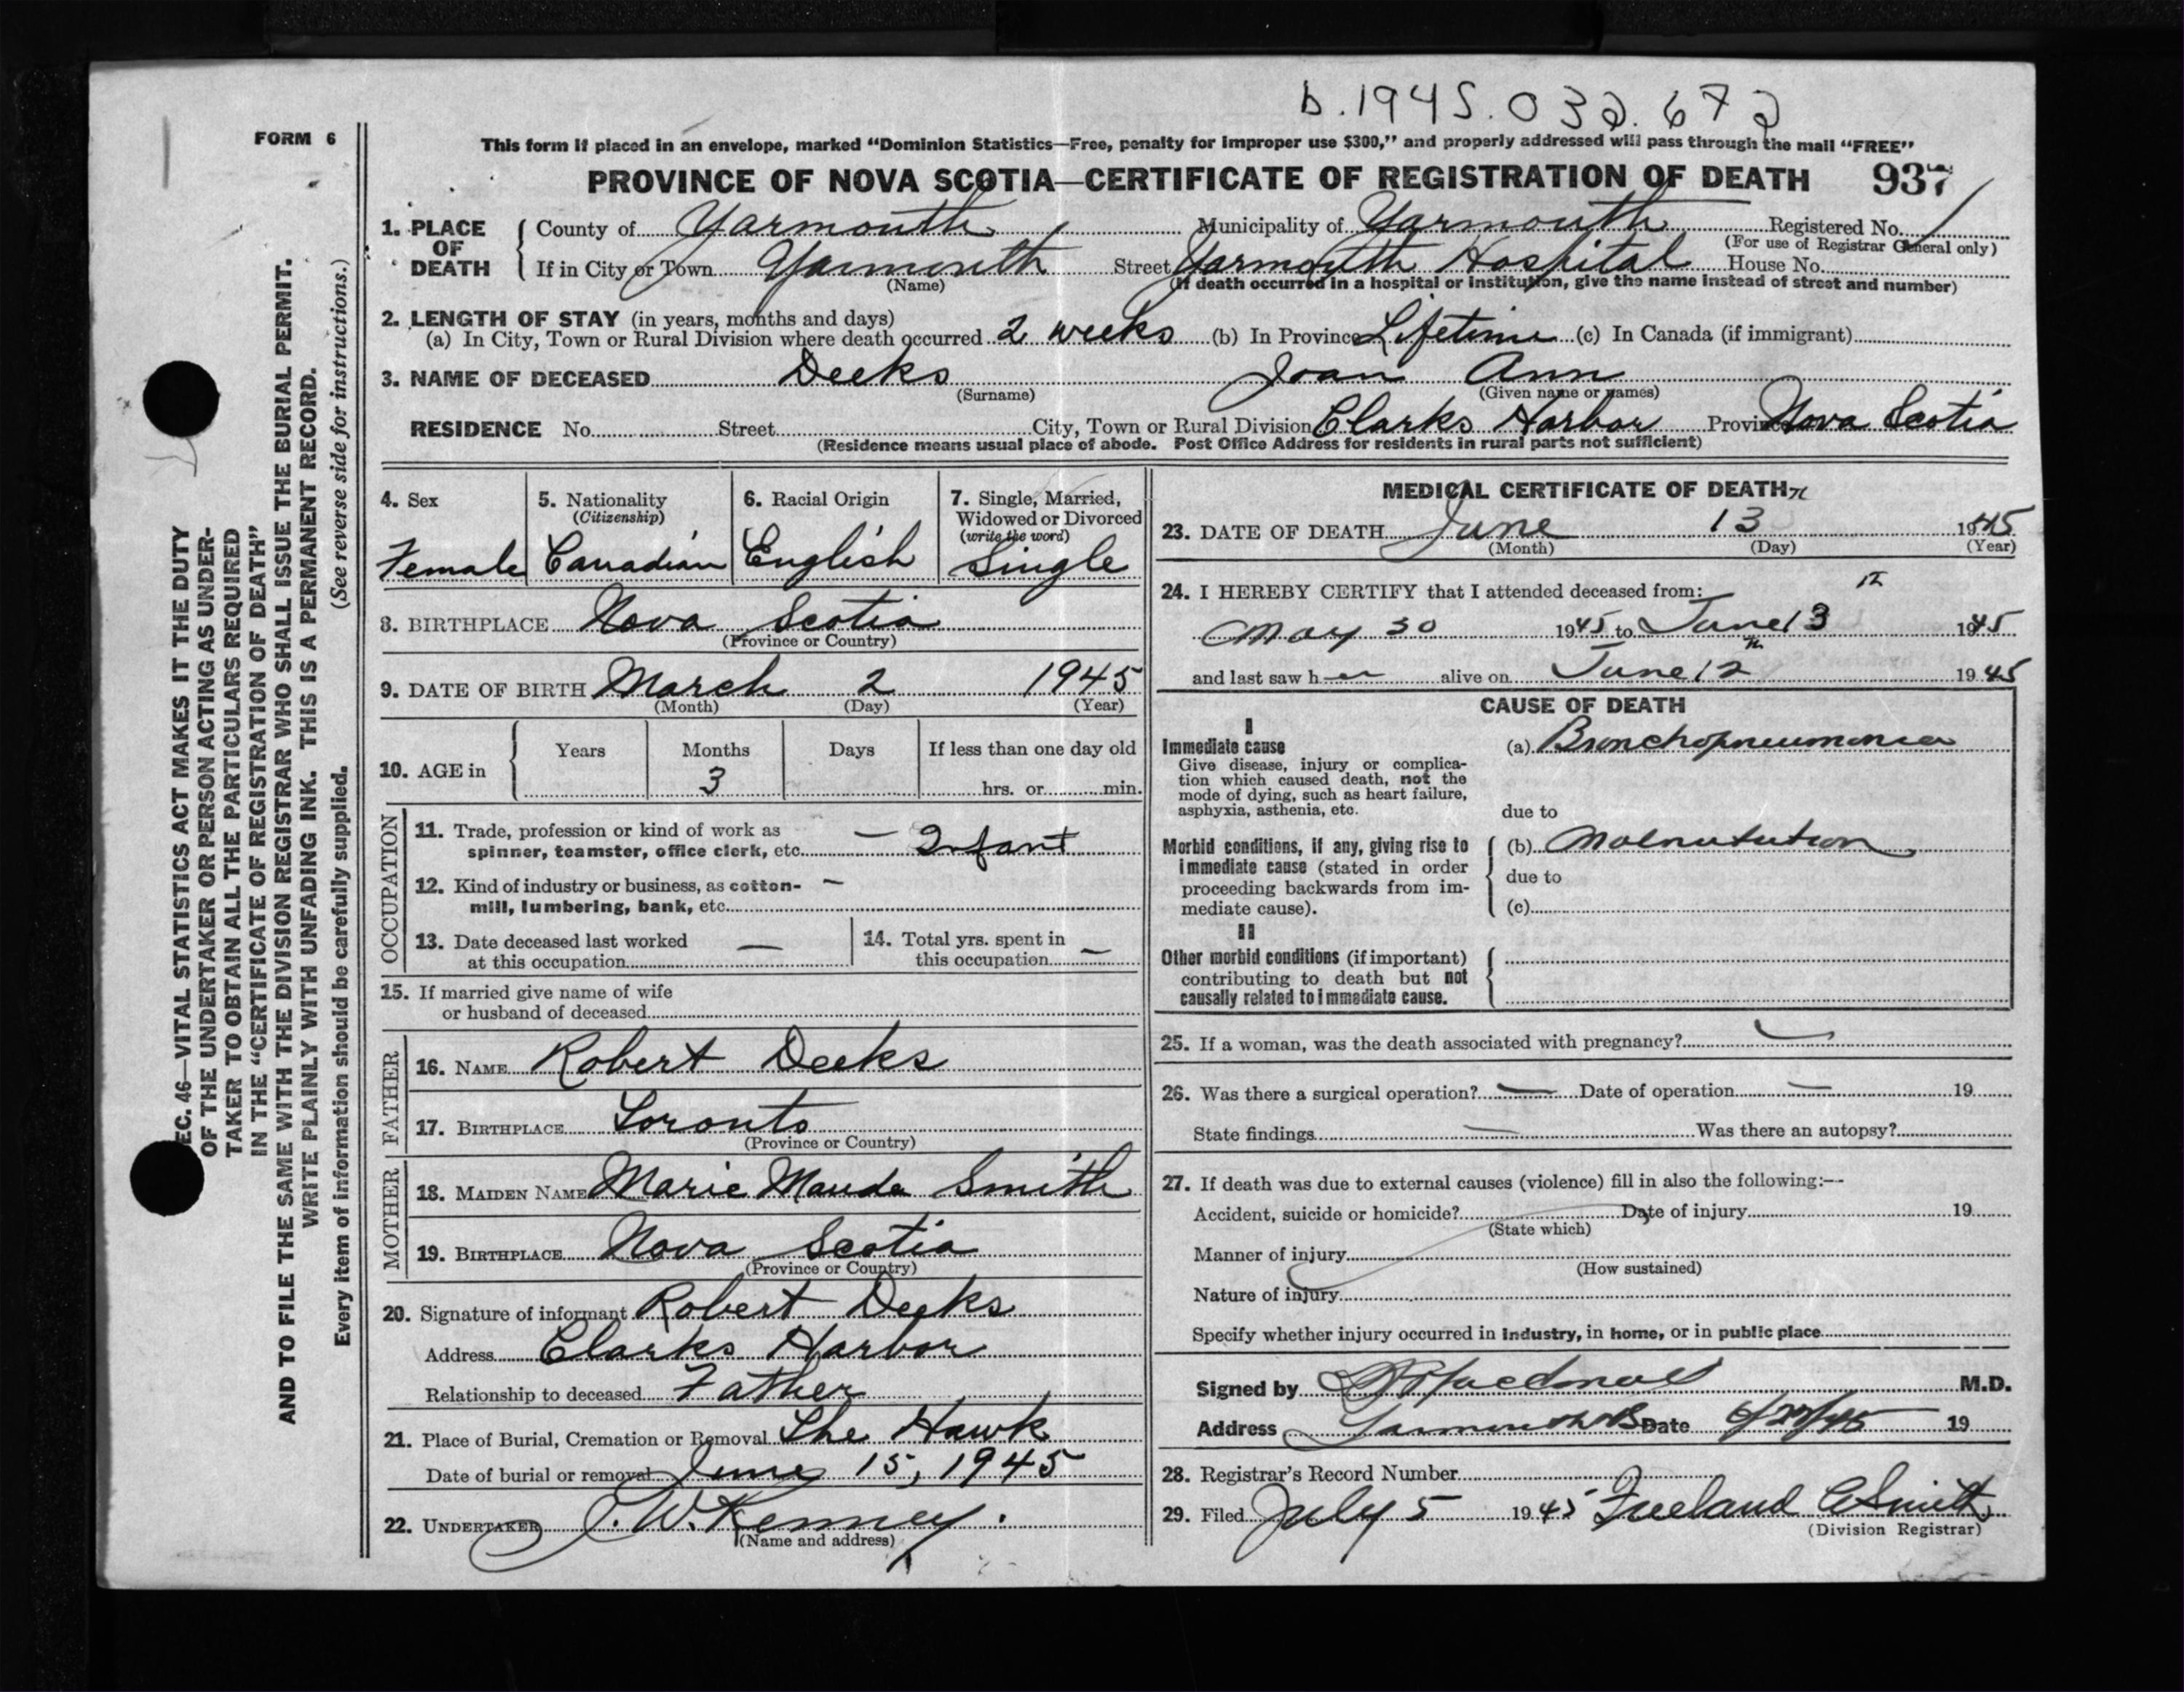 b.1945.032.672
FORM 6
This form if placed in an envelope, marked “Dominion Statistics—Free, penalty for improper use $300,” and properly addressed will pass through the mail “FREE”
PROVINCE OF NOVA SCOTIA—CERTIFICATE OF REGISTRATION OF DEATH 937
1. PLACE OF DEATH
County of Yarmouth Municipality of Yarmouth Registered No.
(For use of Registrar General only)
If in City or Town Yarmouth Street Yarmouth Hospital House No.
(Name) (If death occurred in a hospital or institution, give the name instead of street and number)
2. LENGTH OF STAY (in years, months and days)
(a) In City, Town or Rural Division where death occurred 2 weeks (b) In Province Lifetime (c) In Canada (if immigrant)
3. NAME OF DECEASED Deeks Joan Ann
(Surname) (Given name or names)
RESIDENCE No. Street City, Town or Rural Division Clarks Harbor Province Nova Scotia
(Residence means usual place of abode. Post Office Address for residents in rural parts not sufficient)
4. Sex
Female
5. Nationality
(Citizenship)
Canadian
6. Racial Origin
English
7. Single, Married,
Widowed or Divorced
(write the word)
Single
8. BIRTHPLACE Nova Scotia
(Province or Country)
9. DATE OF BIRTH March 2 1945
(Month) (Day) (Year)
10. AGE in
Years Months Days If less than one day old
3 hrs. or min.
OCCUPATION
11. Trade, profession or kind of work as
spinner, teamster, office clerk, etc. — Infant
12. Kind of industry or business, as cotton- —
mill, lumbering, bank, etc.
13. Date deceased last worked —
at this occupation
14. Total yrs. spent in
this occupation —
15. If married give name of wife
or husband of deceased
FATHER
16. NAME Robert Deeks
17. BIRTHPLACE Toronto
(Province or Country)
MOTHER
18. MAIDEN NAME Marie Mauda Smith
19. BIRTHPLACE Nova Scotia
(Province or Country)
20. Signature of informant Robert Deeks
Address Clarks Harbor
Relationship to deceased Father
21. Place of Burial, Cremation or Removal The Hawk
Date of burial or removal June 15, 1945
22. UNDERTAKER W. Kenney.
(Name and address)
MEDICAL CERTIFICATE OF DEATH
23. DATE OF DEATH June 13 th 1945
(Month) (Day) (Year)
24. I HEREBY CERTIFY that I attended deceased from:
May 30 1945 to June 13 th 1945
and last saw her alive on June 12 th 1945
CAUSE OF DEATH
I
Immediate cause
Give disease, injury or complica-
tion which caused death, not the
mode of dying, such as heart failure,
asphyxia, asthenia, etc.
(a) Bronchopneumonia
due to
Morbid conditions, if any, giving rise to
immediate cause (stated in order
proceeding backwards from im-
mediate cause).
(b) Malnutrition
due to
(c)
II
Other morbid conditions (if important)
contributing to death but not
causally related to immediate cause.
25. If a woman, was the death associated with pregnancy?
26. Was there a surgical operation? — Date of operation — 19
State findings — Was there an autopsy?
27. If death was due to external causes (violence) fill in also the following:—
Accident, suicide or homicide? Date of injury 19
(State which)
Manner of injury
(How sustained)
Nature of injury
Specify whether injury occurred in industry, in home, or in public place
Signed by M.D.
Address Yarmouth NS Date 19
28. Registrar's Record Number
29. Filed July 5 1945 Freeland Smith
(Division Registrar)
SEC. 46—VITAL STATISTICS ACT MAKES IT THE DUTY
OF THE UNDERTAKER OR PERSON ACTING AS UNDER-
TAKER TO OBTAIN ALL THE PARTICULARS REQUIRED
IN THE “CERTIFICATE OF REGISTRATION OF DEATH”
AND TO FILE THE SAME WITH THE DIVISION REGISTRAR WHO SHALL ISSUE THE BURIAL PERMIT.
WRITE PLAINLY WITH UNFADING INK. THIS IS A PERMANENT RECORD.
Every item of information should be carefully supplied. (See reverse side for instructions.)